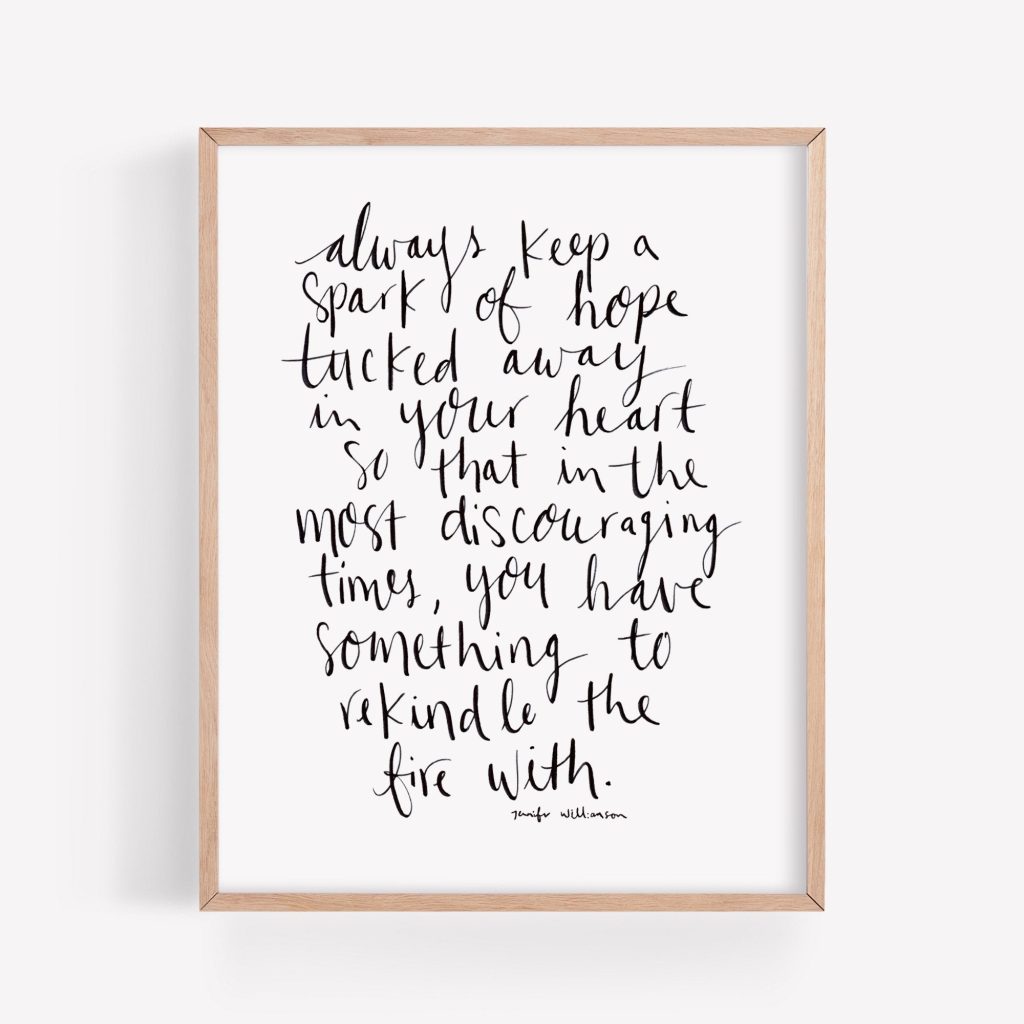 always keep a
spark of hope
tucked away
in your heart
so that in the
most discouraging
times, you have
something to
rekindle the
fire with.
Jenifr Williamson